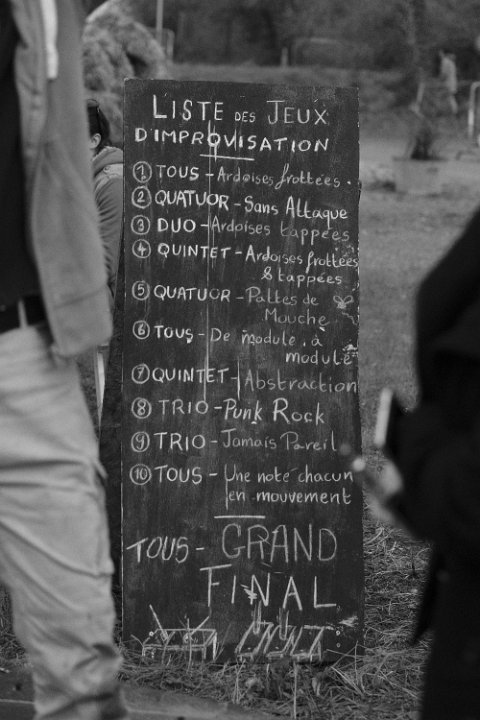 LISTE DES JEUX
D'IMPROVISATION
1 TOUS - Ardoises frottées.
2 QUATUOR - Sans Attaque
3 DUO - Ardoises tappées
4 QUINTET - Ardoises frottées
& tappées
5 QUATUOR - Pattes de
Mouche
6 TOUS - De module, à
module
7 QUINTET - Abstraction
8 TRIO - Punk Rock
9 TRIO - Jamais Pareil
10 TOUS - Une note chacun
en mouvement
TOUS - GRAND
FINAL